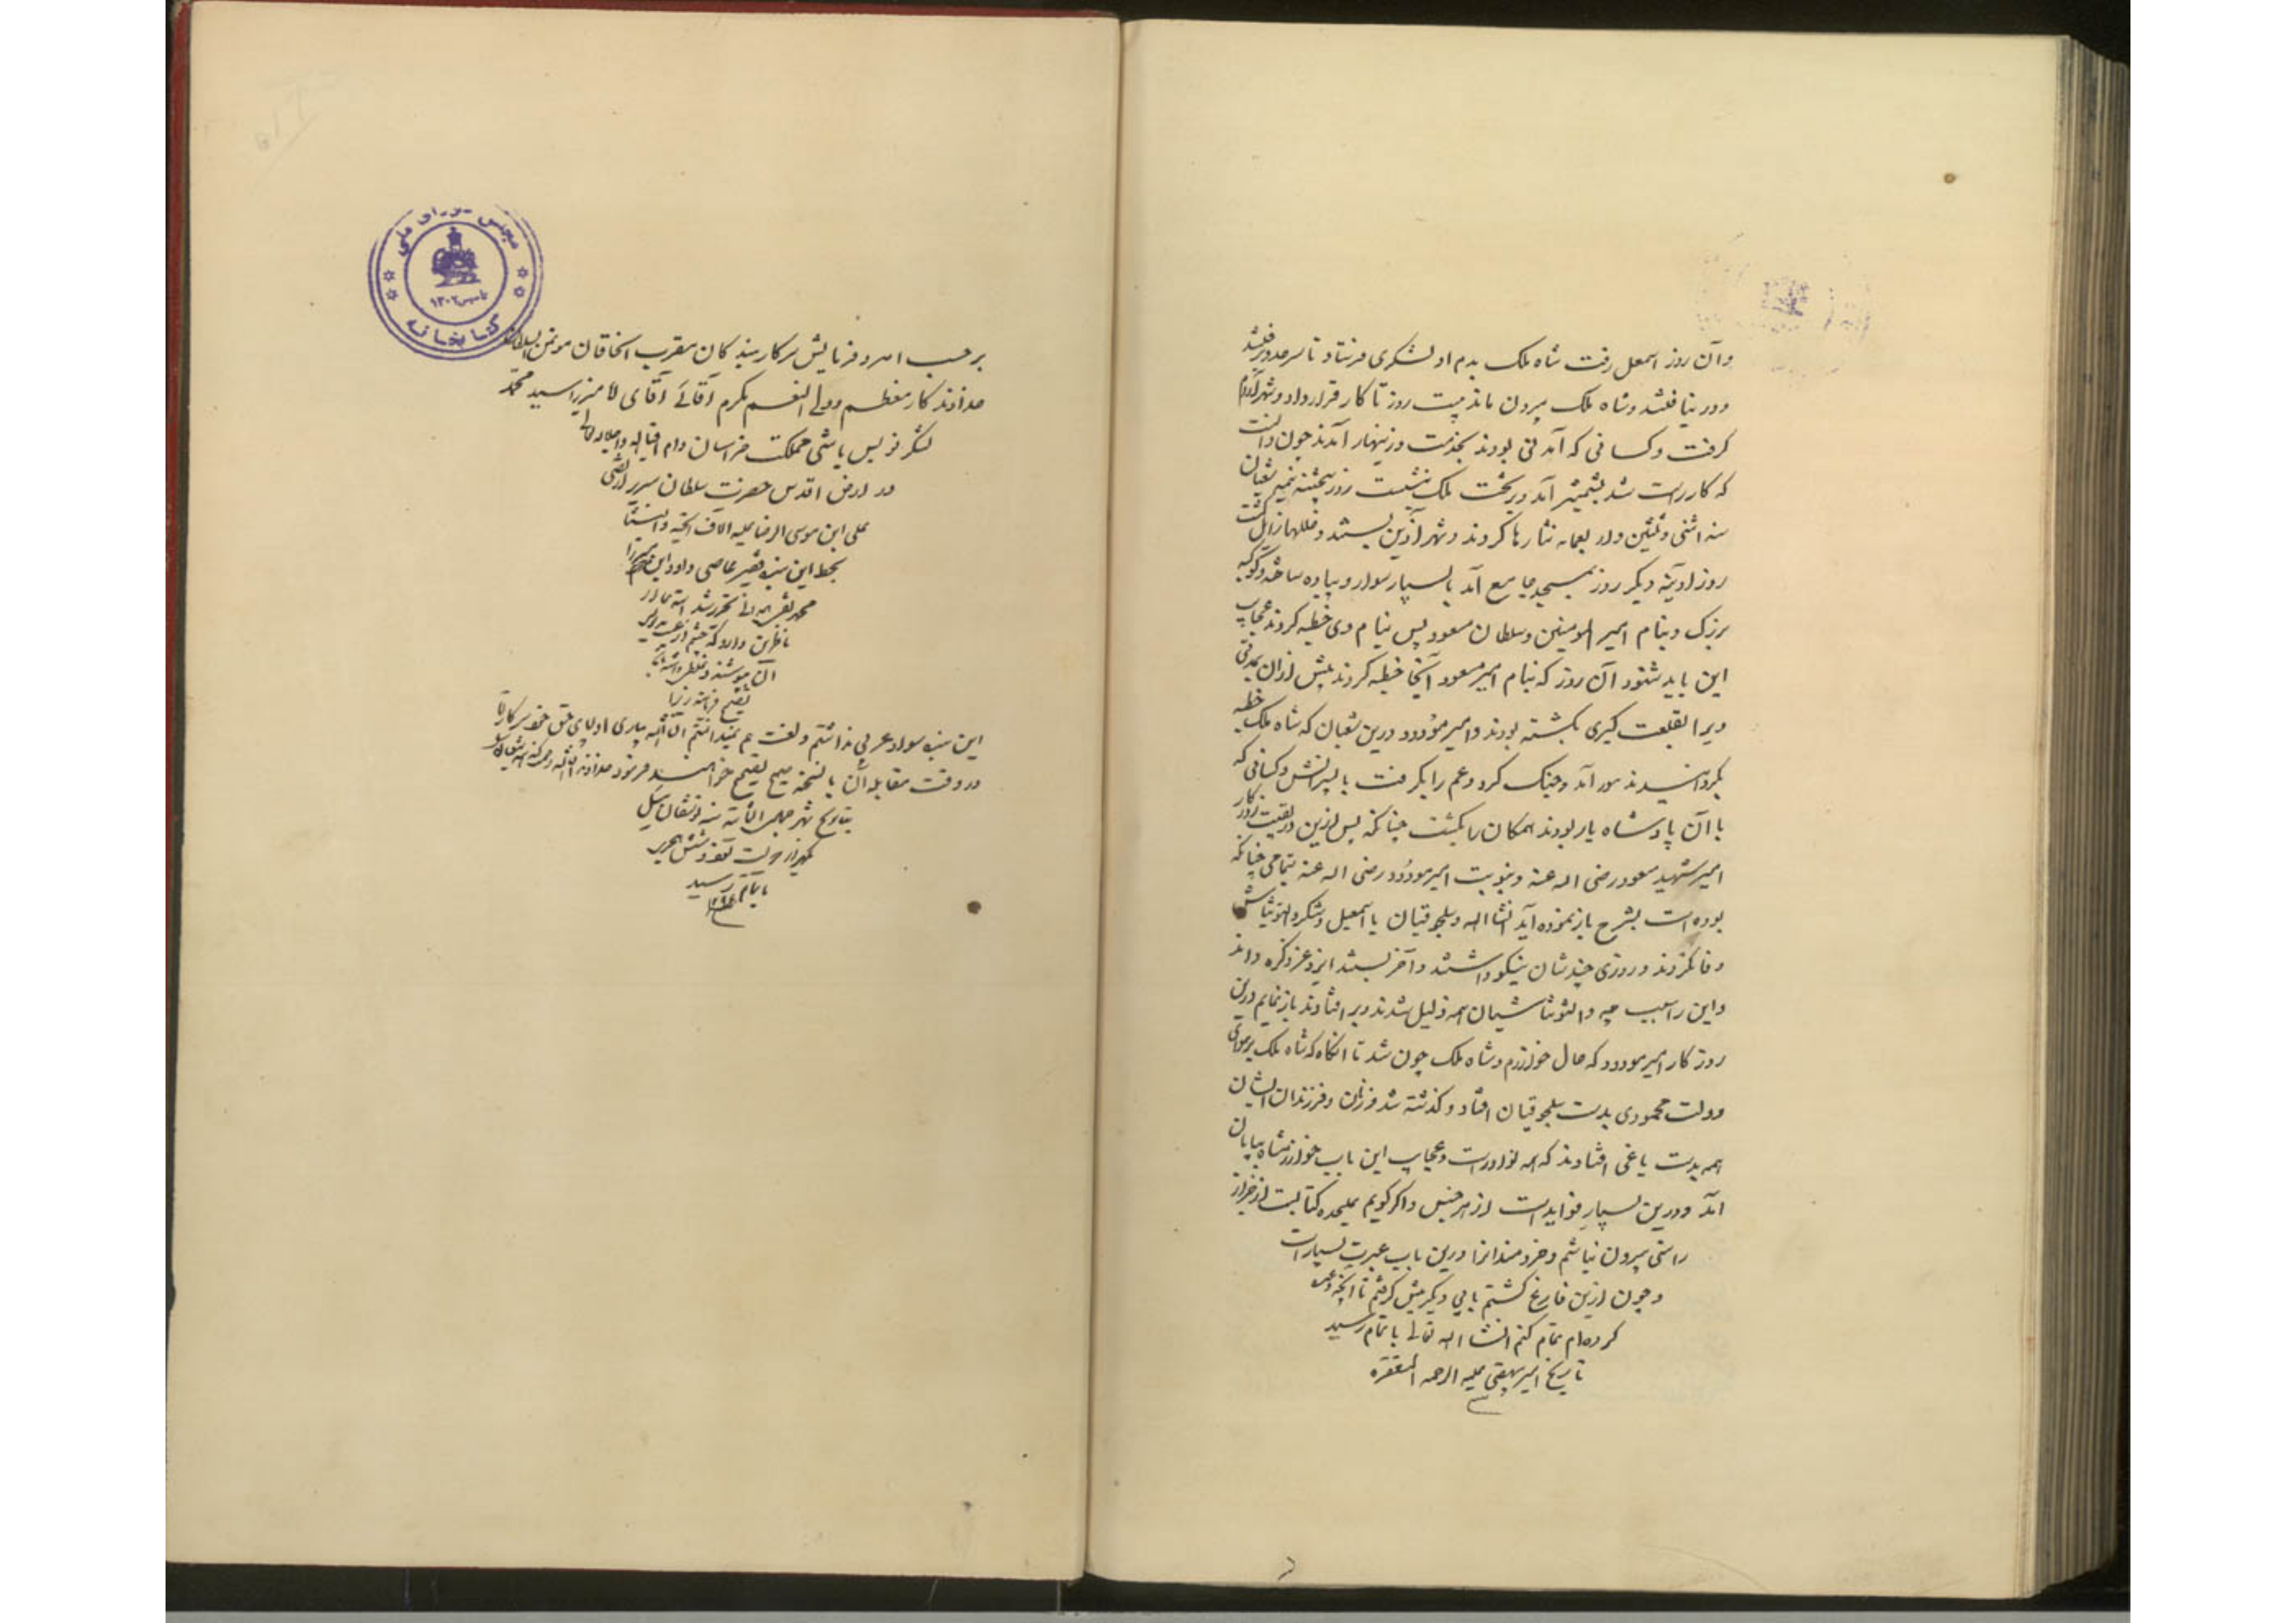 و آن روز اسمعل رفت شاه ملک بدم او لشکری فرستاد تا سرحد برفتند
و در نیافتند و شاه ملک بیرون ماند بیست روز تا کار قرار داد و شهر آرام
گرفت و کسانی که آمدنی بودند بخدمت و زینهار آمدند چون دانست
که کار راست شد بشهر آمد و بر تخت ملک بنشست روز پنجشنبه نیمه شعبان
سنه اثنی و ثلثین و اربعمائه نثارها کردند و شهر آذین بستند و خللها زائل گشت
روز آدینه دیگر روز بمسجد جامع آمد با بسیار سوار و پیاده ساخته و کوکبه
بزرک و بنام امیر المومنین و سلطان مسعود پس بنام وی خطبه کردند عجایب
این باید شنود آن روز که بنام امیر مسعود آنجا خطبه کردند پیش از آن بمدتی
ویرا بقلعت کیری بکشته بودند و امیر مودود درین شعبان که شاه ملک خطبه
بکردانید آمد و جنک کرد و عم را بکرفت با پسرانش و کسانی که
با آن پادشاه یار بودند همکان را بکشت چنانکه پس ازین در بقیت روزکار
امیر شهید مسعود رضی اله عنه و بنوبت امیر مودود رضی اله عنه بتمامی چنانکه
بوده است بشرح باز نموده آید انشااله و سلجوقیان با اسمعیل و شکر و التونتاش
وفا نکردند و روزی چندشان نیکو داشتند و آخر ببستند ایزد عز ذکره داند
و این را سبب چه و التونتاشیان همه ذلیل شدند و بر افتادند باز نمایم درین
روزکار امیر مودود که حال خوارزم و شاه ملک چون شد تا آنکاه که شاه ملک بر هوای
دولت محمودی بدست سلجوقیان افتاد و کذشته شد و زنان و فرزندان ایشان
همه بدست یاغی افتادند که همه نوادر است و عجایب این باب خوارزمشاه بپایان
آمد و درین بسیار فوایدست از هر جنس و اکر کویم علیحده کتابیست از خبر از
راستی بیرون نباشم و خردمندانرا درین باب عبرت بسیار است
و چون ازین فارغ کشتم بابی دیکر پیش کرفتم تا آنچه وعده
کرده‌ام تمام کنم انشااله تعالی باتمام رسید
تاریخ امیر بیهقی علیه الرحمه المغفره
مجلس شورای ملی
تاسیس ۱۳۰۲
کتابخانه
بر حسب امر و فرمایش سرکار بندکان مقرب الخاقان موتمن السلطان
خداوندکار معظم و ولی النعم مکرم آقائی آقای میرزا سید محمد
لشکر نویس باشی مملکت خراسان دام اقباله و اجلاله
در ارض اقدس حضرت سلطان سریر ارتضی
علی ابن موسی الرضا علیه الاف التحیه و الثنا
بخط این بنده فقیر عاصی داود ابن میرزا
محمد تحریر شد استدعا از
ناظرین دارد که چشم از عیب
آن بپوشند و غلطی داشته باشد
تصحیح فرمایند زیرا
این بنده سواد عربی نداشتم و لغت هم نمیدانستم انشاالله بیاری اولیای حق خود سرکار
در وقت مقابله آن با نسخه صحیح تصحیح خواهند فرمود
بتاریخ شهر جمادی الثانیه سنه توشقان ئیل
یکهزار دویست نود و شش هجری
باتمام رسید
۱۲۹۶